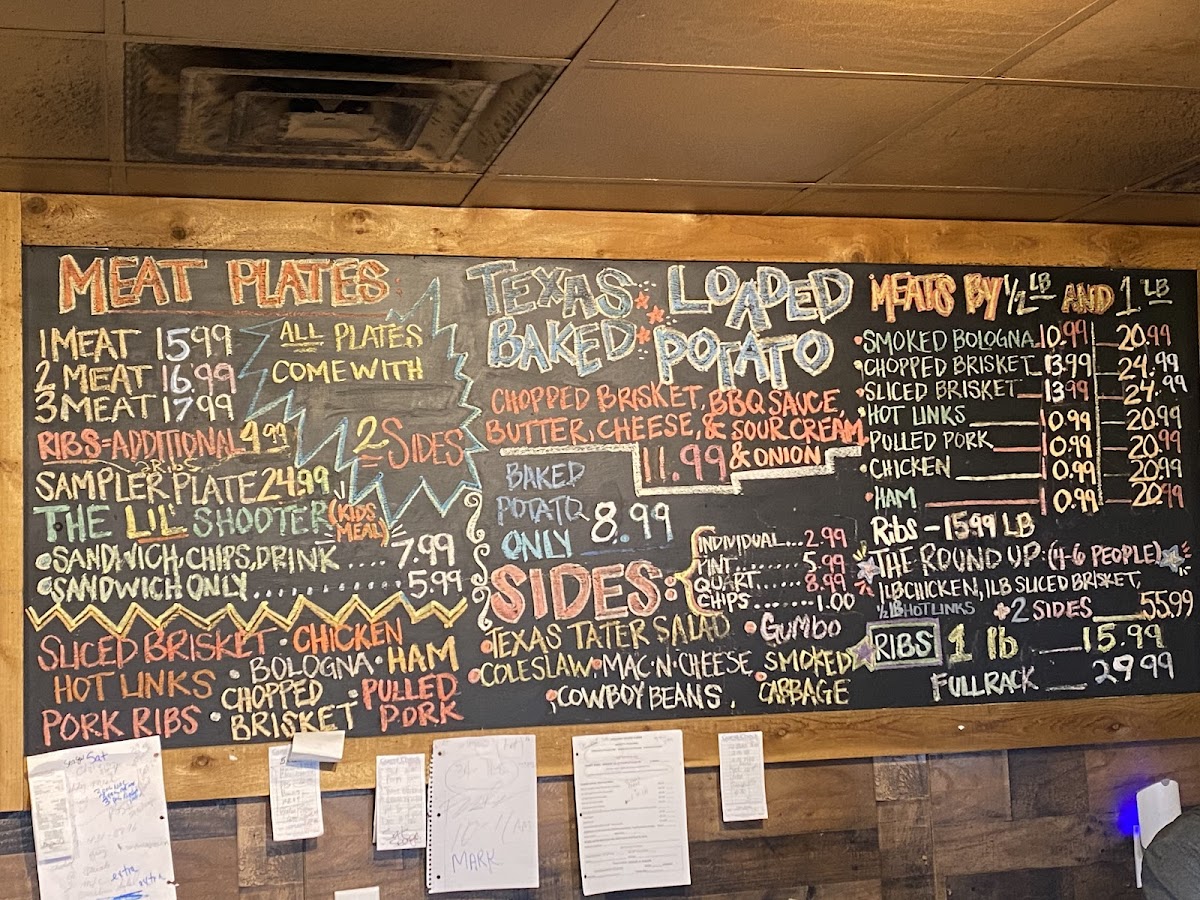 MEAT PLATES:
1 MEAT 15.99
2 MEAT 16.99
3 MEAT 17.99
RIBS = ADDITIONAL 4.99
2 RIBS
SAMPLER PLATE 24.99
THE LIL' SHOOTER (KIDS MEAL)
• SANDWICH, CHIPS, DRINK .... 7.99
• SANDWICH ONLY ............ 5.99
ALL PLATES
COME WITH
2 SIDES
SLICED BRISKET • CHICKEN
HOT LINKS • BOLOGNA • HAM
PORK RIBS • CHOPPED BRISKET • PULLED PORK
TEXAS LOADED
BAKED POTATO
CHOPPED BRISKET, BBQ SAUCE,
BUTTER, CHEESE, & SOUR CREAM
11.99 & ONION
BAKED
POTATO
ONLY 8.99
SIDES:
INDIVIDUAL... 2.99
PINT....... 5.99
QUART...... 8.99
CHIPS....... 1.00
• TEXAS TATER SALAD • GUMBO
• COLESLAW • MAC-N-CHEESE • SMOKED CABBAGE
• COWBOY BEANS
MEATS BY 1/2 LB AND 1 LB
• SMOKED BOLOGNA 10.99 20.99
• CHOPPED BRISKET 13.99 24.99
• SLICED BRISKET 13.99 24.99
• HOT LINKS 10.99 20.99
• PULLED PORK 10.99 20.99
• CHICKEN 10.99 20.99
• HAM 10.99 20.99
Ribs - 15.99 LB
THE ROUND UP: (4-6 PEOPLE)
1 LB CHICKEN, 1 LB SLICED BRISKET,
1/2 LB HOT LINKS + 2 SIDES 55.99
RIBS 1 lb 15.99
FULL RACK 29.99
Sat
extra
extra
MARK